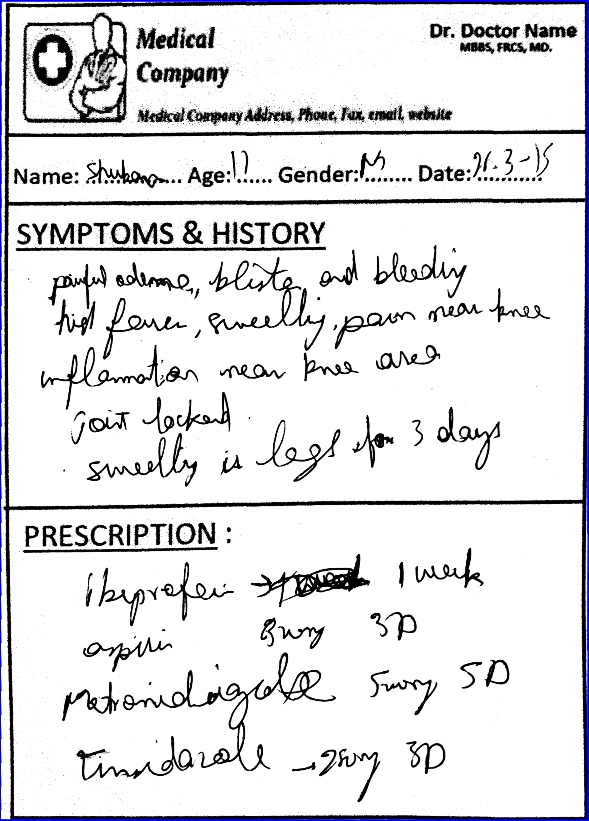 Medical
Company
Dr. Doctor Name
MBBS, FRCS, MD.
Medical Company Address, Phone, Fax, email, website
Name: ............ Age: 17 Gender: M Date: .3-15
SYMPTOMS & HISTORY
painful edema, bliste and bleeding
high fever, swelling, pain near knee
inflammation near knee area
Joint locked
swelling is legs for 3 days
PRESCRIPTION :
Ibuprofein → 1 week
aspirin 3D
Metronidiazole 5D
Tinidazole → 3D